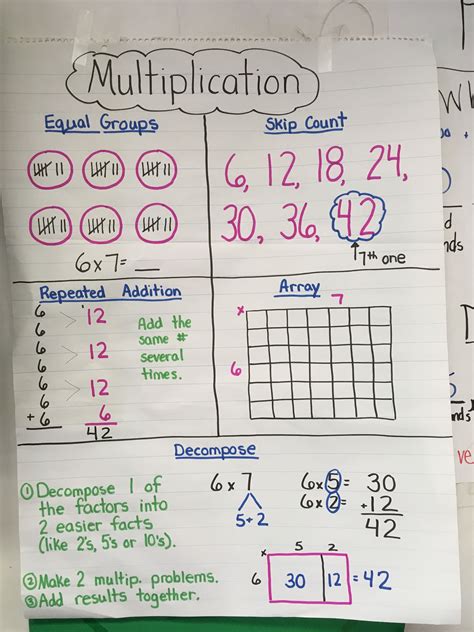 Multiplication
Equal Groups
6x7= __
Skip Count
6, 12, 18, 24,
30, 36, 42
7th one
Repeated Addition
6
6 > 12
6
6 > 12
6
6 > 12
+6 6
42
Add the
same #
several
times.
Array
x 7
6
Decompose
① Decompose 1 of
the factors into
2 easier facts
(like 2's, 5's or 10's).
② Make 2 multip. problems.
③ Add results together.
6x7
5+2
6x5= 30
6x2= +12
42
x 5 2
6 30 12 = 42
W
nds
nds
ve